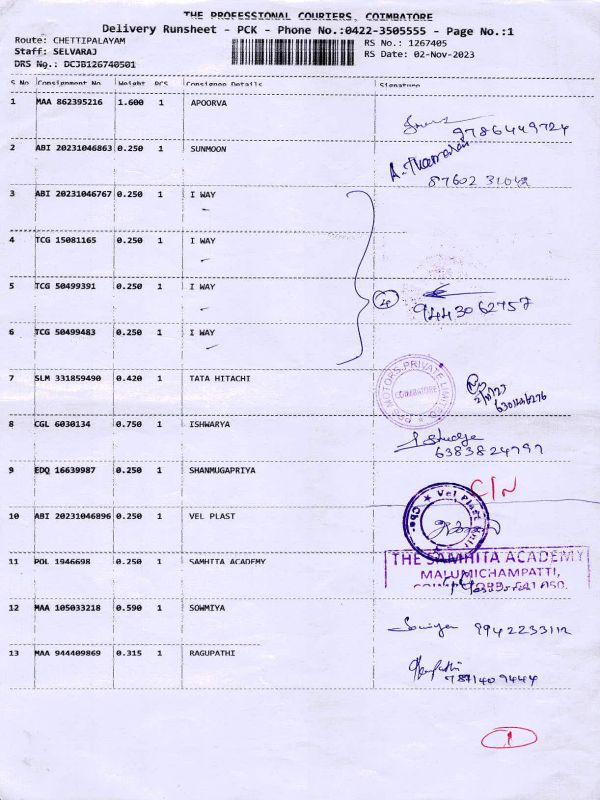 THE PROFESSIONAL COURIERS, COIMBATORE
Delivery Runsheet - PCK - Phone No.:0422-3505555 - Page No.:1
Route: CHETTIPALAYAM
Staff: SELVARAJ
DRS No.: DCJB126740501
RS No.: 1267405
RS Date: 02-Nov-2023
S No Consignment No Weight PCS Consignee Details Signature
1 MAA 862395216 1.600 1 APOORVA
9786449724
2 ABI 20231046863 0.250 1 SUNMOON
A. Thamarai
87602 31042
3 ABI 20231046767 0.250 1 I WAY
4 TCG 15081165 0.250 1 I WAY
5 TCG 50499391 0.250 1 I WAY
4 9443062757
6 TCG 50499483 0.250 1 I WAY
7 SLM 331859490 0.420 1 TATA HITACHI
MOTORS PRIVATE LIMITED
COIMBATORE
8 CGL 6030134 0.750 1 ISHWARYA
6383824797
9 EDQ 16639987 0.250 1 SHANMUGAPRIYA
C/N
10 ABI 20231046896 0.250 1 VEL PLAST
Vel Plast
Cbe
11 POL 1946698 0.250 1 SAMHITA ACADEMY
THE SAMHITA ACADEMY
MALUMICHAMPATTI,
12 MAA 105033218 0.590 1 SOWMIYA
9942233112
13 MAA 944409869 0.315 1 RAGUPATHI
7871409444
1